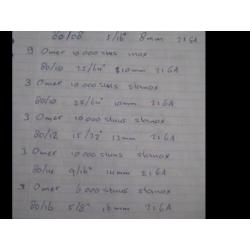 80/08 5/16" 8mm 21GA
9 Omer 10.000 stuks inox
80/10 25/64" 10mm 21GA
3 Omer 10.000 stuks stanox
80/10 25/64" 10mm 21GA
3 Omer 10.000 stuks stanox
80/12 15/32" 12mm 21GA
3 Omer 10.000 stuks stanox
80/14 9/16" 14mm 21GA
3 Omer 6.000 stuks stanox
80/16 5/8" 16mm 21GA